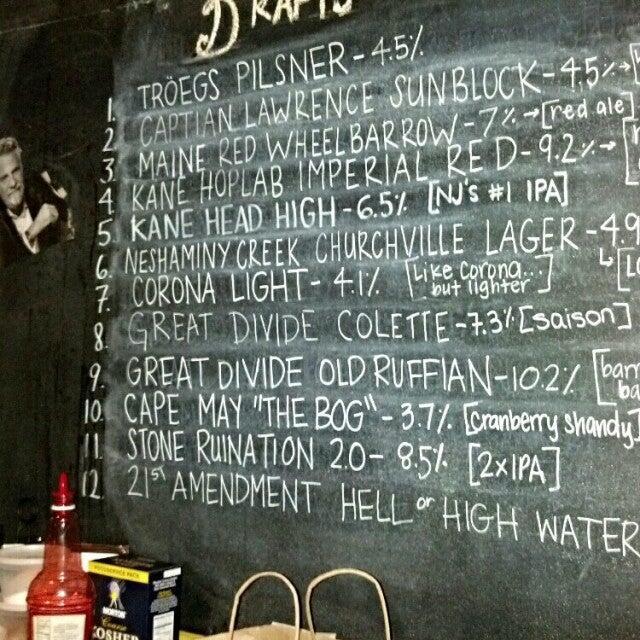 DRAFTS
1. TRÖEGS PILSNER - 4.5%
2. CAPTIAN LAWRENCE SUNBLOCK - 4.5% →
3. MAINE RED WHEELBARROW - 7% → [red ale]
4. KANE HOPLAB IMPERIAL RED - 9.2% →
5. KANE HEAD HIGH - 6.5% [NJ'S #1 IPA]
6. NESHAMINY CREEK CHURCHVILLE LAGER - 4.9
7. CORONA LIGHT - 4.1% [Like Corona... but lighter]
8. GREAT DIVIDE COLETTE - 7.3% [saison]
9. GREAT DIVIDE OLD RUFFIAN - 10.2%
10. CAPE MAY "THE BOG" - 3.7% [cranberry shandy]
11. STONE RUINATION 2.0 - 8.5% [2xIPA]
12. 21st AMENDMENT HELL or HIGH WATER
MORTON
Coarse
KOSHER